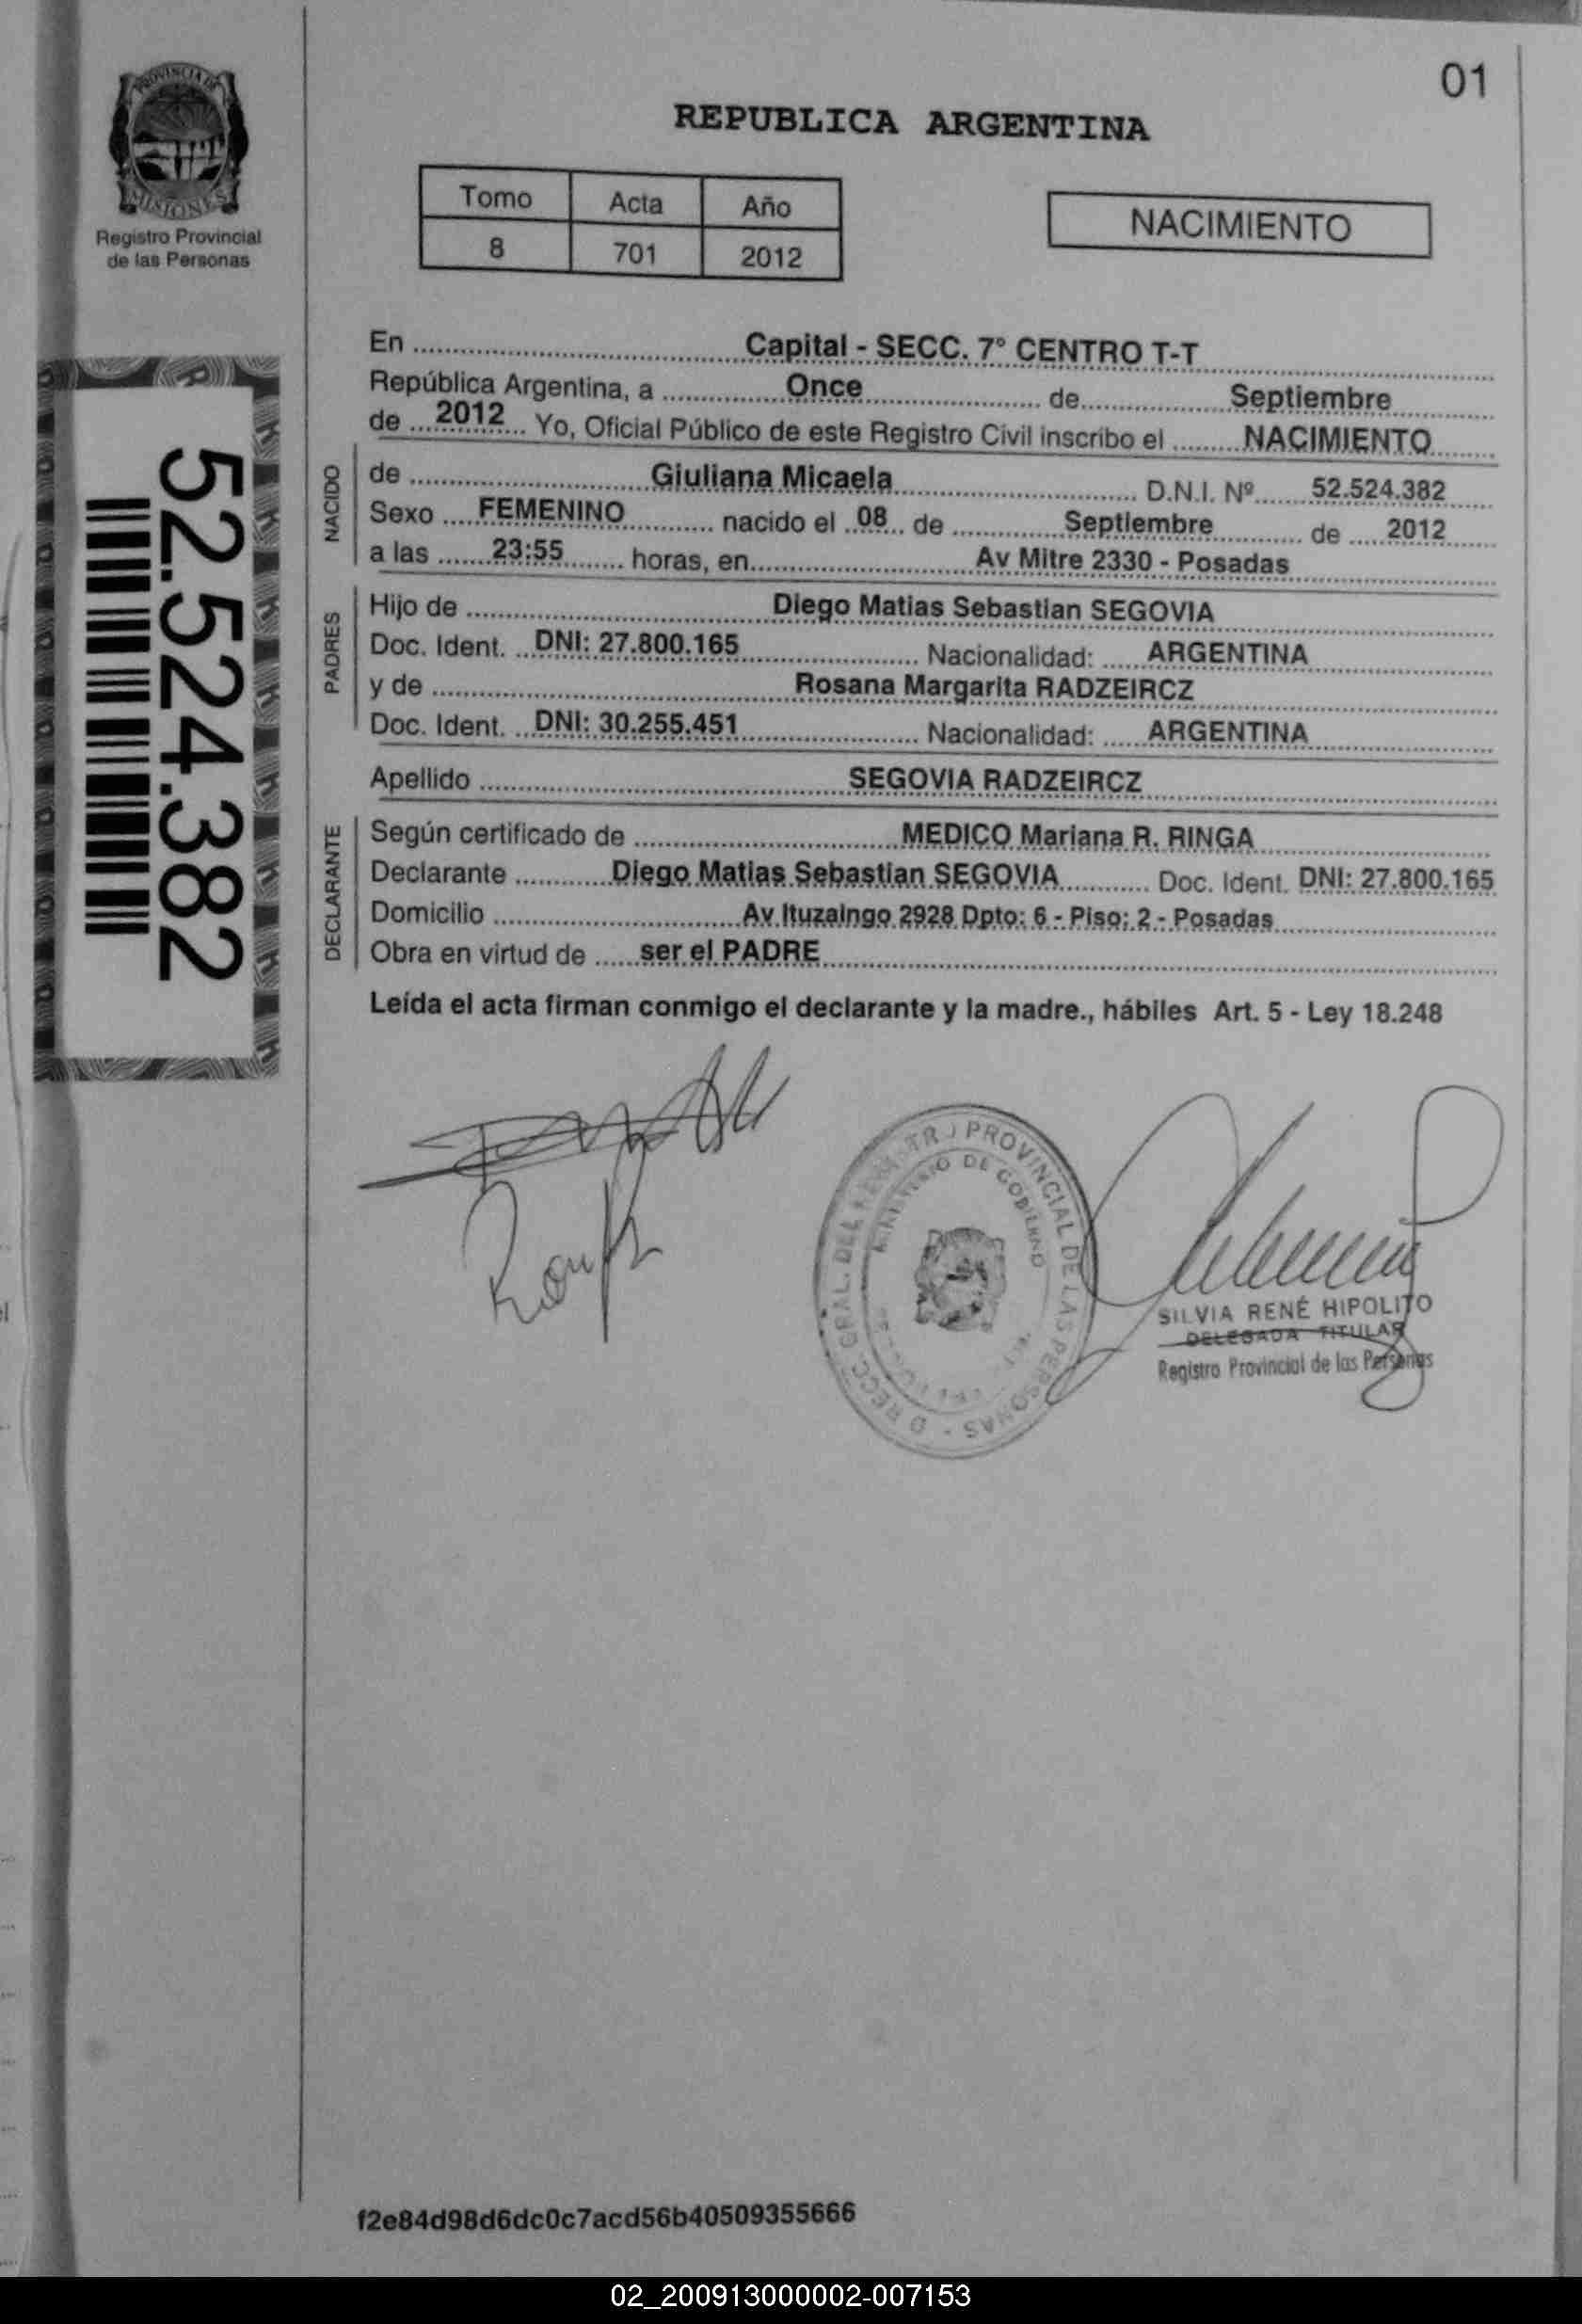 01
PROVINCIA DE
MISIONES
Registro Provincial
de las Personas
REPUBLICA ARGENTINA
Tomo Acta Año
8 701 2012
NACIMIENTO
52.524.382
En Capital - SECC. 7° CENTRO T-T
República Argentina, a Once de Septiembre
de 2012 Yo, Oficial Público de este Registro Civil inscribo el NACIMIENTO
NACIDO
de Giuliana Micaela D.N.I. Nº 52.524.382
Sexo FEMENINO nacido el 08 de Septiembre de 2012
a las 23:55 horas, en Av Mitre 2330 - Posadas
PADRES
Hijo de Diego Matias Sebastian SEGOVIA
Doc. Ident. DNI: 27.800.165 Nacionalidad: ARGENTINA
y de Rosana Margarita RADZEIRCZ
Doc. Ident. DNI: 30.255.451 Nacionalidad: ARGENTINA
Apellido SEGOVIA RADZEIRCZ
DECLARANTE
Según certificado de MEDICO Mariana R. RINGA
Declarante Diego Matias Sebastian SEGOVIA Doc. Ident. DNI: 27.800.165
Domicilio Av Ituzaingo 2928 Dpto: 6 - Piso: 2 - Posadas
Obra en virtud de ser el PADRE
Leída el acta firman conmigo el declarante y la madre., hábiles Art. 5 - Ley 18.248
PROVINCIAL DE LAS PERSONAS
DE GOBIERNO
SILVIA RENÉ HIPOLITO
DELEGADA TITULAR
Registro Provincial de las Personas
f2e84d98d6dc0c7acd56b40509355666
02_200913000002-007153